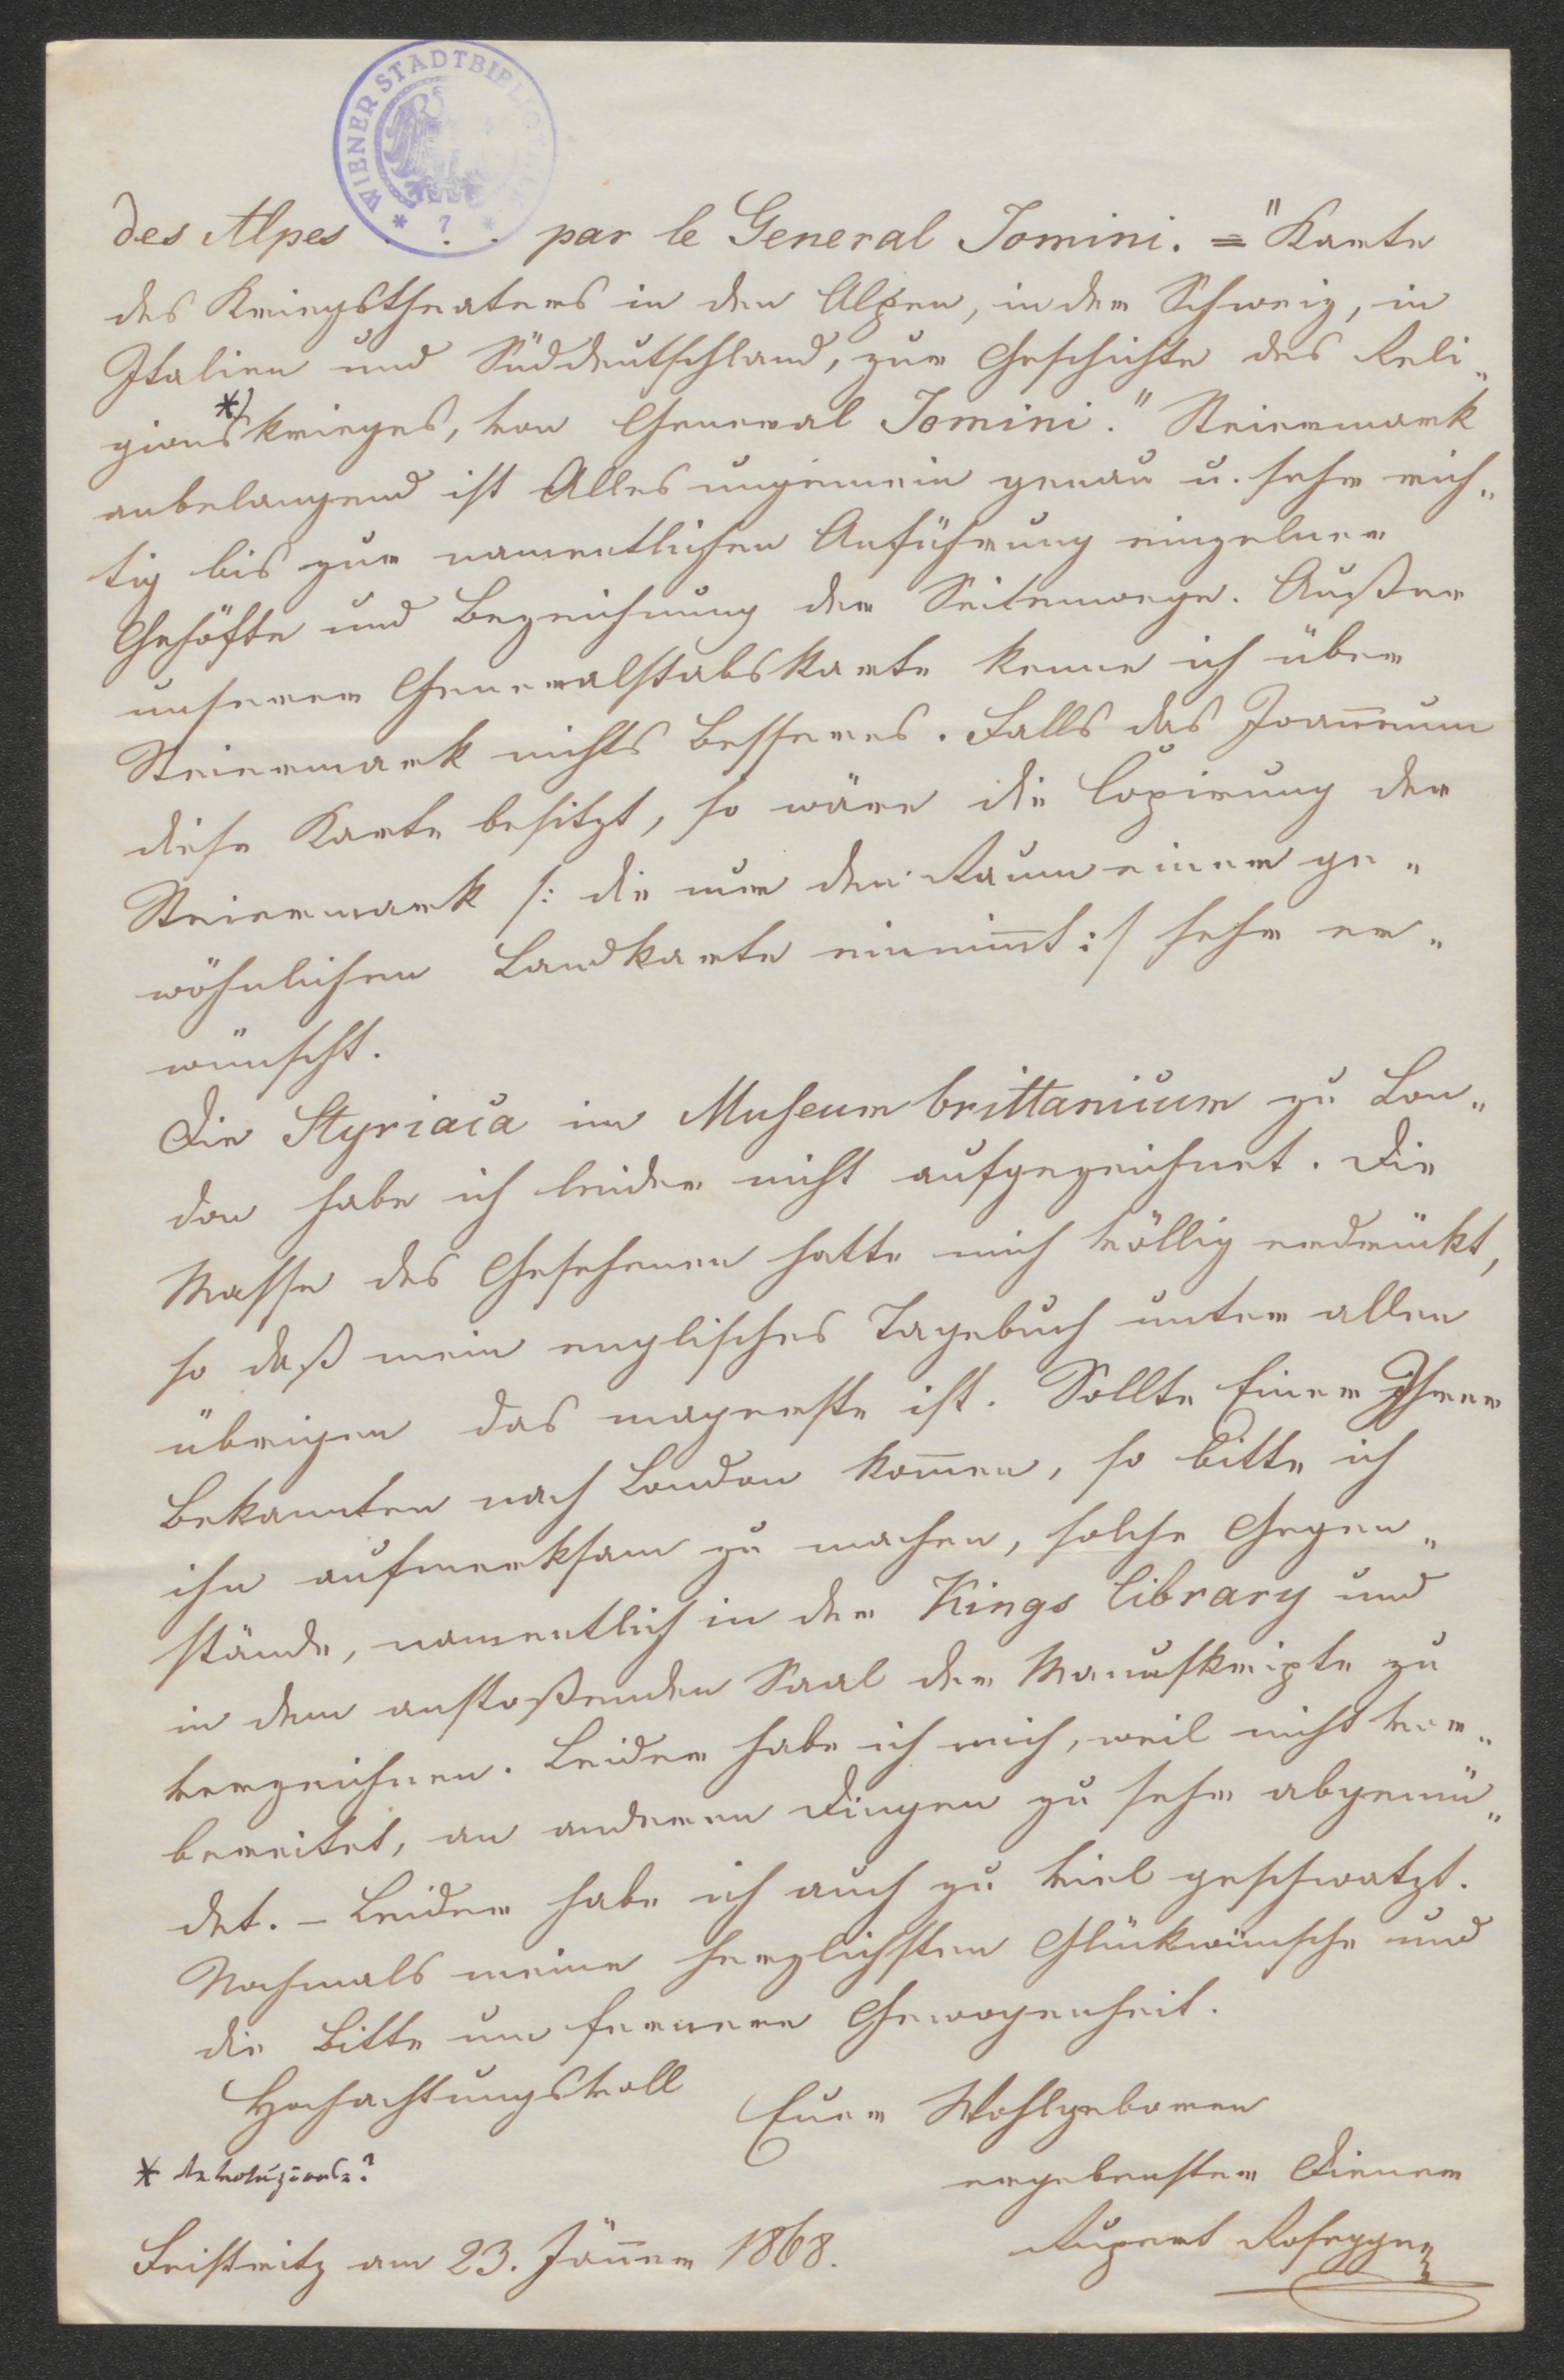 WIENER STADTBIBLIOTHEK
* 7 *
des Alpes . . . par le General Jomini. = "Karte
des Kriegstheaters in den Alpen, in der Schweiz, in
Italien und Süddeutschland, zur Geschichte des Reli„
gions*)krieges, von General Jomini." Steiermark
anbelangend ist Alles ungemein genau u. sehr rich„
tig bis zur namentlichen Anführung einzelner
Gehöfte und Bezeichnung der Seitenwege. Außer
unserer Generalstabskarte kenne ich über
Steiermark nichts Besseres. Falls das Joan̄eum
diese Karte besitzt, so wäre die Copirung der
Steiermark /: die nur den Raum einer ge„
wöhnlichen Landkarte einnim̄t :/ sehr er„
wünscht.
Die Styriaca im Museum brittanicum zu Lon„
don habe ich leider nicht aufgezeichnet. Die
Masse des Gesehenen hatte mich völlig erdrückt,
so daß mein englisches Tagebuch unter allen
übrigen das magerste ist. Sollte Einer Ihrer
Bekannten nach London kom̄en, so bitte ich
ihn aufmerksam zu machen, solche Gegen„
stände, namentlich in der Kings library und
in dem anstoßenden Saal der Manuskripte zu
verzeichnen. Leider habe ich mich, weil nicht vor„
bereitet, an anderen Dingen zu sehr abgemü„
det. – Leider habe ich auch zu viel geschwatzt.
Nochmals meine herzlichsten Glückwünsche und
die Bitte um fernere Gewogenheit.
Hochachtungsvoll
Euer Wohlgeboren
ergebenster Diener
Rupert Rosegger
* Revoluzions?
Feistritz am 23. Jän̄er 1868.